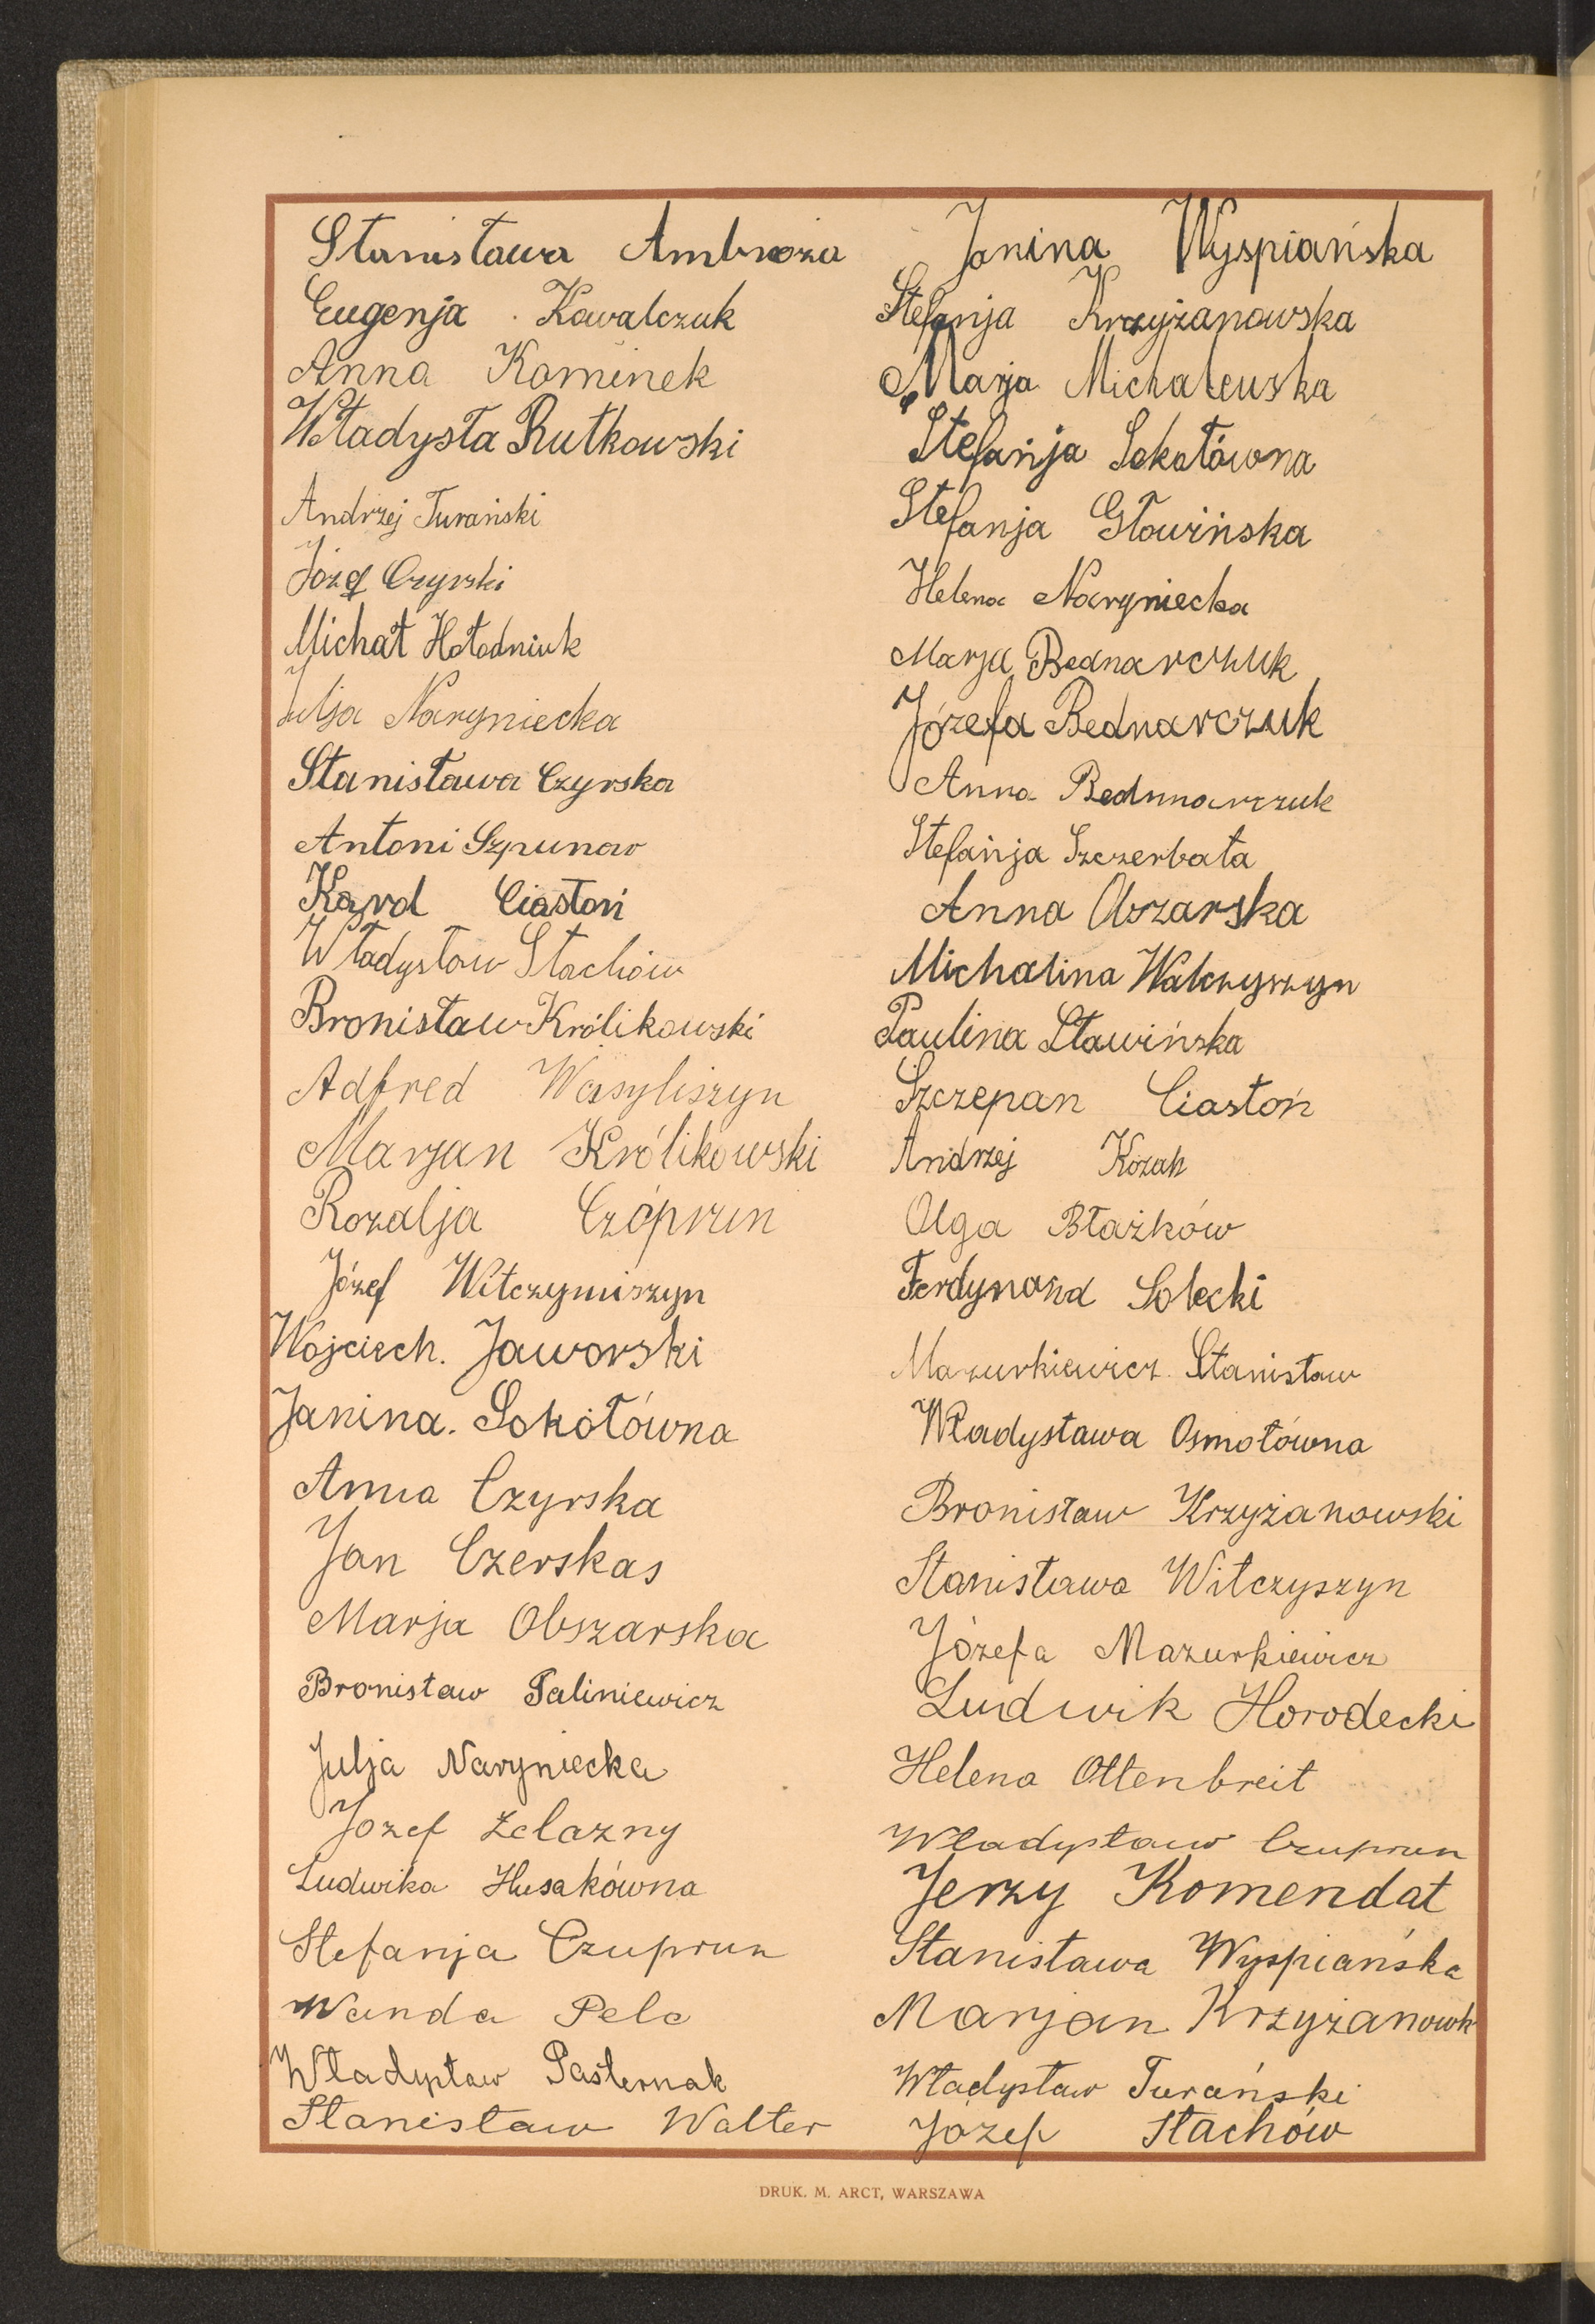 Stanisława Ambroża
Eugenja Kowalczuk
Anna Kominek
Władysła Rutkowski
Andrzej Turański
Józef Czyrski
Michał Hołodniuk
Julja Naryniecka
Stanisława Czyrska
Antoni Szpunar
Karol Ciastoń
Władysław Stachów
Bronisław Królikowski
Adfred Wasyliszyn
Marjan Królikowski
Rozalja Czóprun
Józef Witczymiszyn
Wojciech. Jaworski
Janina. Sokołówna
Anna Czyrska
Jan Czerskas
Marja Obszarska
Bronisław Paliniewicz
Julja Naryniecka
Józef Żelazny
Ludwika Husakówna
Stefanja Czuprun
Wanda Pelc
Władysław Pasternak
Stanisław Walter
Janina Wyspiańska
Stefanja Krzyżanowska
Marja Michalewska
Stefanja Sokołówna
Stefanja Głowińska
Helena Naryniecka
Marja Bednarczuk
Józefa Bednarczuk
Anna Bednnarczuk
Stefanja Szczerbata
Anna Obszarska
Michalina Walczyszyn
Paulina Sławińska
Szczepan Ciastoń
Andrzej Kozak
Olga Błażków
Ferdynand Solecki
Mazurkiewicz Stanisław
Władysława Osmołówna
Bronisław Krzyżanowski
Stanisława Witczyszyn
Józefa Mazurkiewicz
Ludwik Horodecki
Helena Ottenbreit
Władysław Czuprun
Jerzy Komendat
Stanisława Wyspiańska
Marjan Krzyżanowk
Władysław Turański
Józef Stachów
DRUK. M. ARCT, WARSZAWA